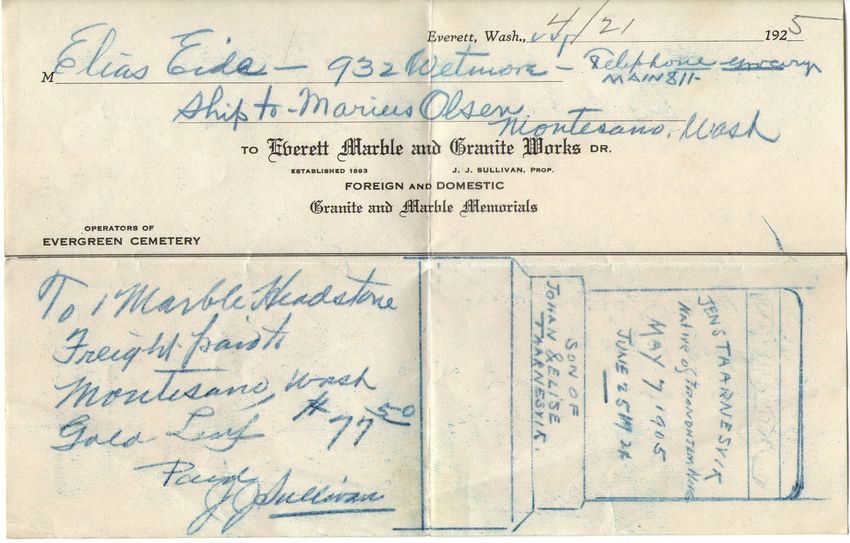 Everett, Wash., 4/21 1925
M Elias Eide - 932 Wetmore - Telephone grocery
MAIN 811-
Ship to - Marius Olsen
Montesano, Wash
TO Everett Marble and Granite Works DR.
ESTABLISHED 1893 J. J. SULLIVAN, PROP.
FOREIGN AND DOMESTIC
Granite and Marble Memorials
OPERATORS OF
EVERGREEN CEMETERY
To 1 Marble Headstone
Freight paid to
Montesano, Wash
Gold Leaf $77.50
Paid
J J Sullivan
JENS TAARNESVIK
Native of Norway
MAY 7 1905
JUNE 25 1924
SON OF
JOHAN & ELISE
TAARNESVIK.